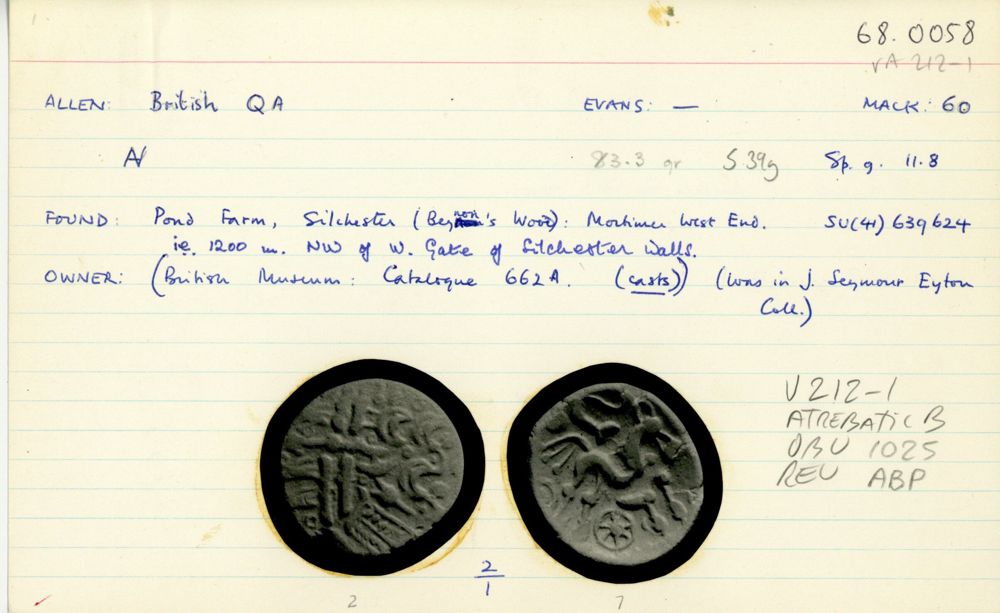 68.0058
VA 212-1
ALLEN: British QA EVANS: — MACK: 60
AV 83.3 gr 5.39g Sp. g. 11.8
FOUND: Pond Farm, Silchester (Beynon's Wood): Mortimer West End. SU(41) 639624
ie. 1200 m. NW of W. Gate of Silchester walls.
OWNER: (British Museum: Catalogue 662A. (casts)) (was in J. Seymour Eyton
Coll.)
V212-1
ATREBATIC B
OBV 1025
REV ABP
2
1
2 7